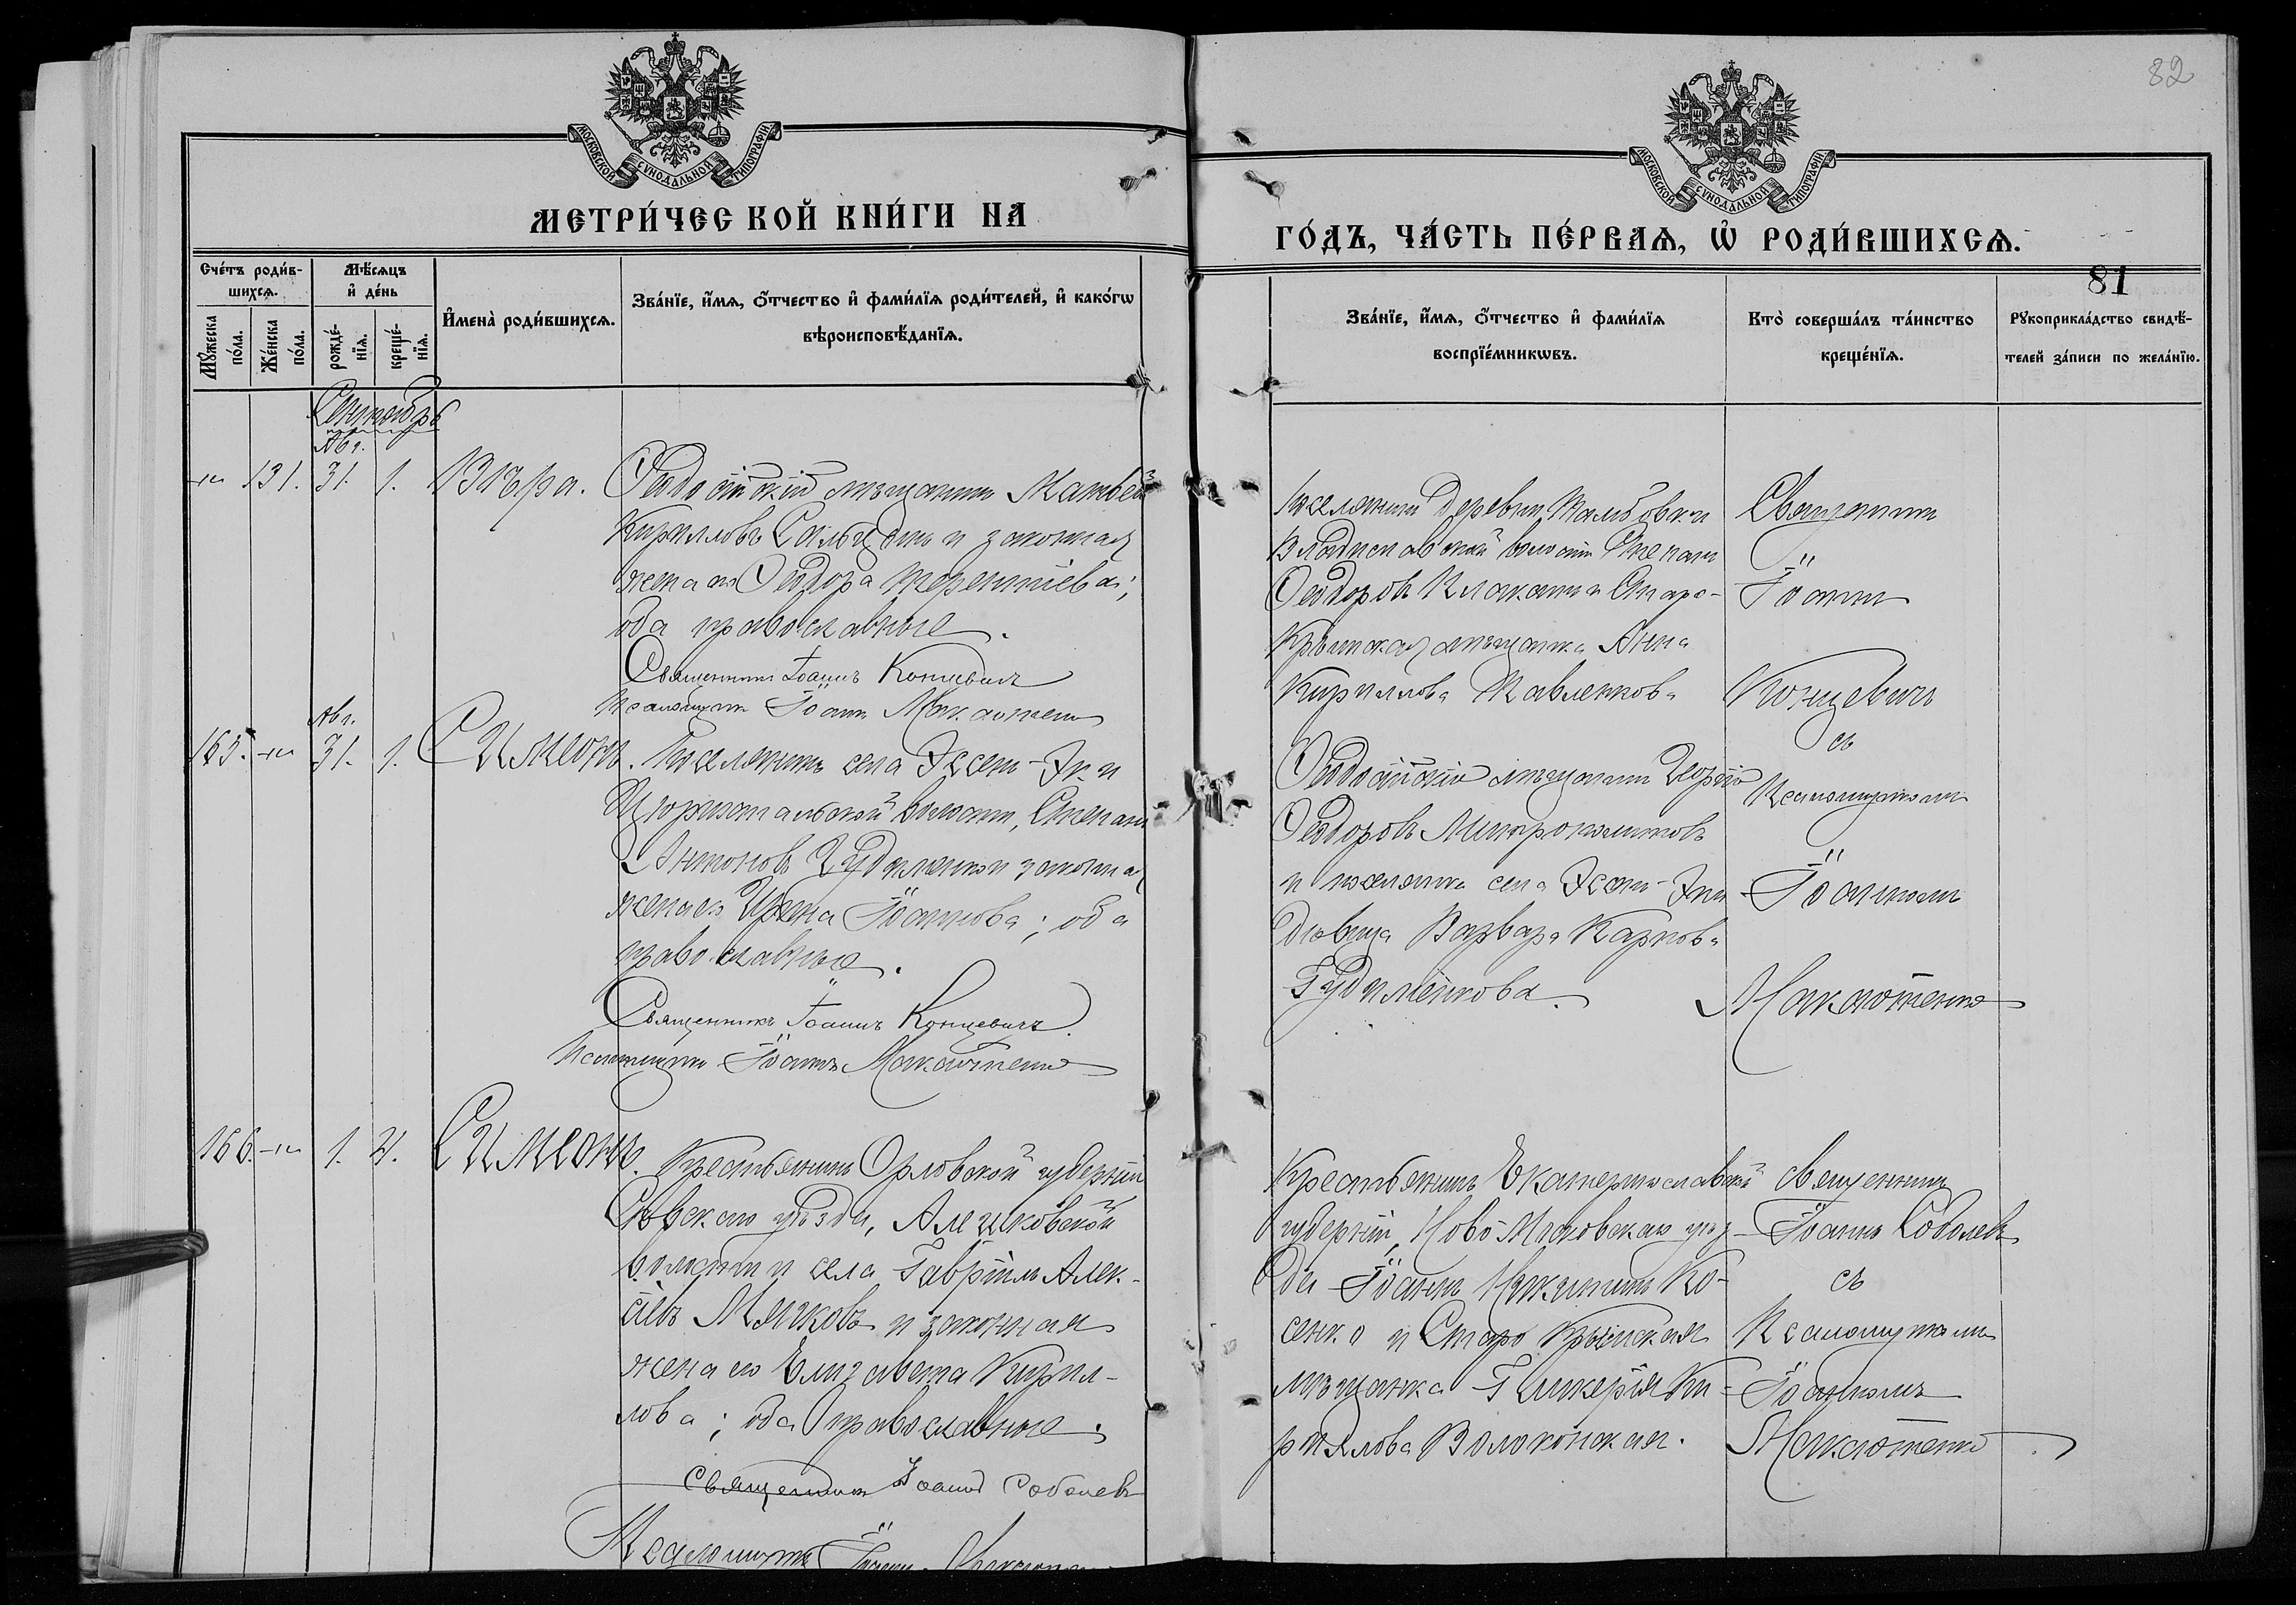 82
МОСКОВСКОЙ СѴНОДАЛЬНОЙ ТИПОГРАФІИ
МОСКОВСКОЙ СѴНОДАЛЬНОЙ ТИПОГРАФІИ
МЕТРИ́ЧЕСКОЙ КНИ́ГИ НА
ГО́ДЪ, ЧА́СТЬ ПЕ́РВАѦ, Ѡ҆ РОДИ́ВШИХСѦ.
81
Сче́тъ роди́в-
шихсѧ.
Мꙋ́жеска
по́ла.
Же́нска
по́ла.
Мѣ́сѧцъ
и҆ де́нь
рожде́-
нїѧ.
креще́-
нїѧ.
И҆мена̀ роди́вшихсѧ.
Зва́нїе, и҆́мѧ, ѻ҆́тчество и҆ фами́лїѧ роди́телей, и҆ како́гѡ
вѣроисповѣ́данїѧ.
Зва́нїе, и҆́мѧ, ѻ҆́тчество и҆ фами́лїѧ
воспрїе́мникѡвъ.
Кто̀ соверша́лъ та́инство
креще́нїѧ.
Рꙋкоприкла́дство свидѣ́-
телей за́писи по жела́нїю.
Сентябрь
Авг.
131. 31. 1. Вѣра.
Ѳеодосійскій мѣщанинъ Матвей
Кирилловъ и законная
жена его Ѳеодора Терентіева;
оба православные.
Священникъ Іоаннъ Концевичъ
Псаломщикъ Іоаннъ Макаотенко
Поселянинъ деревни
Владиславской волости Степанъ
Ѳеодоровъ и Старо-
Крымская мѣщанка Анна
Кириллова Павленкова
Священникъ
Іоаннъ
Концевичъ
съ
Псаломщикомъ
Іоанномъ
Макаотенко
Авг.
165. 31. 1. Симеонъ.
Поселянинъ села Эссенъ-Эки
Цюрихтальской волости, Степанъ
Антоновъ Гудименко и законная
жена его Ирина Іоаннова; оба
православные.
Священникъ Іоаннъ Концевичъ.
Псаломщикъ Іоаннъ Макаотенко
Ѳеодосійскій мѣщанинъ Георгій
Ѳеодоровъ
и поселянка села Эссенъ-Эки
дѣвица Варвара Карпова
Гудименкова.
166. 1. 4. Симеонъ.
Крестьянинъ Орловской губерніи
Сѣвскаго уѣзда, Алешковской
волости и села Гавріилъ Алек-
сіевъ Мячковъ и законная
жена его Елизавета Кирил-
лова; оба православные.
Священникъ Іоаннъ Соболевъ
Псаломщикъ Іоаннъ Макаотенко
Крестьянинъ Екатеринославской
губерніи, Ново-Московскаго уѣз-
да Іоаннъ Никитинъ Ко-
сенко и Старо Крымская
мѣщанка Гликерія Ки-
риллова Волоконская.
Священникъ
Іоаннъ Соболевъ
съ
Псаломщикомъ
Іоанномъ
Макаотенко